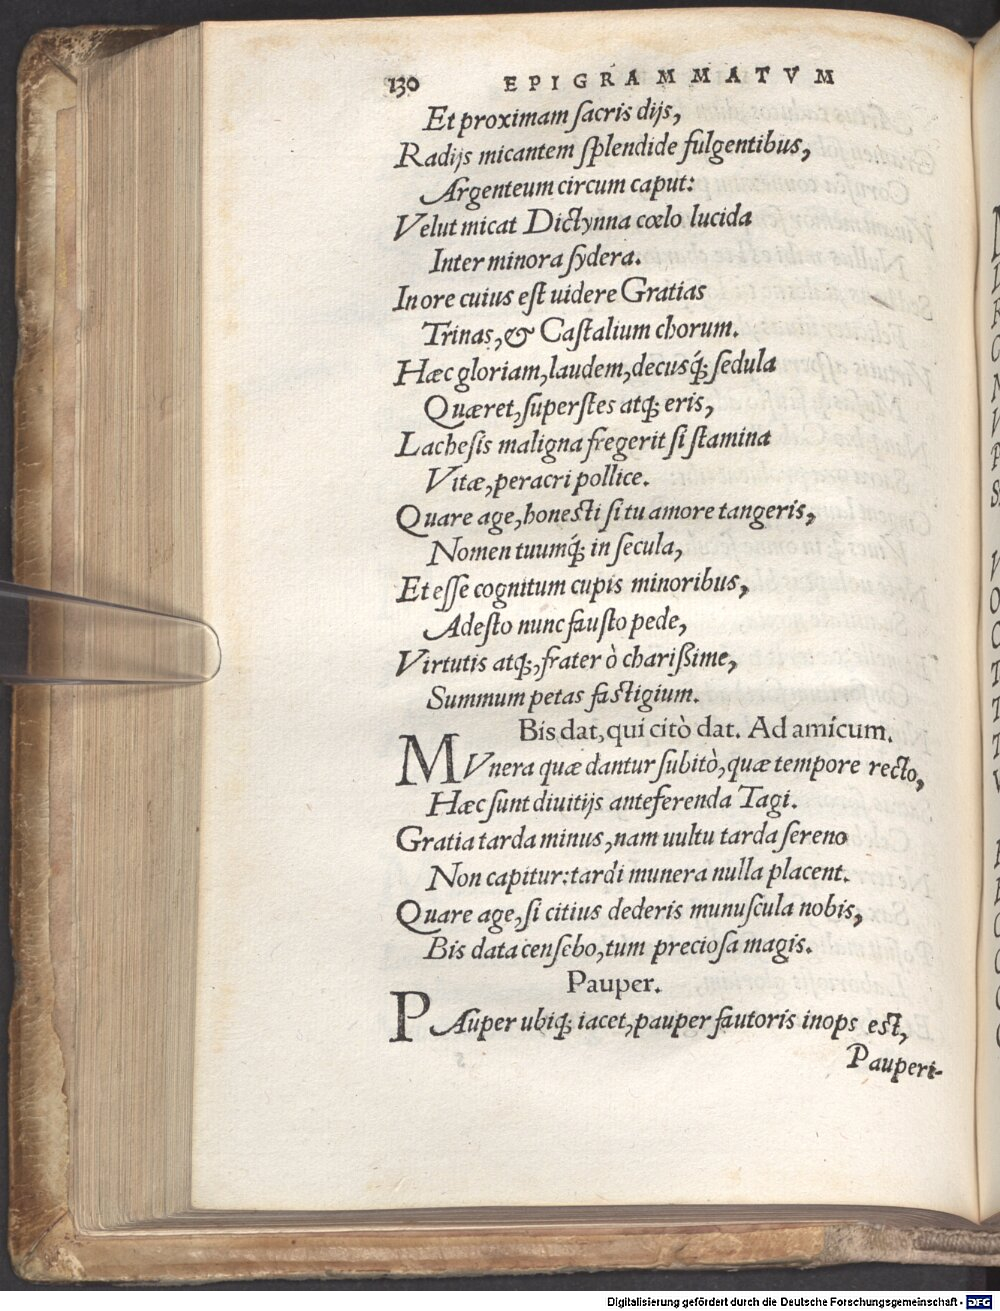 130 EPIGRAMMATVM
Et proximam sacris dijs,
Radijs micantem splendide fulgentibus,
Argenteum circum caput:
Velut micat Dictynna cœlo lucida
Inter minora sydera.
In ore cuius est uidere Gratias
Trinas, & Castalium chorum.
Hæc gloriam, laudem, decusq́; sedula
Quæret, superstes atq; eris,
Lachesis maligna fregerit si stamina
Vitæ, peracri pollice.
Quare age, honesti si tu amore tangeris,
Nomen tuumq́; in secula,
Et esse cognitum cupis minoribus,
Adesto nunc fausto pede,
Virtutis atq;, frater ò charißime,
Summum petas fastigium.
Bis dat, qui citò dat. Ad amicum.
MVnera quæ dantur subitò, quæ tempore recto,
Hæc sunt diuitijs anteferenda Tagi.
Gratia tarda minus, nam uultu tarda sereno
Non capitur: tardi munera nulla placent.
Quare age, si citius dederis munuscula nobis,
Bis data censebo, tum preciosa magis.
Pauper.
PAuper ubiq; iacet, pauper fautoris inops est,
Pauperi-
Digitalisierung gefördert durch die Deutsche Forschungsgemeinschaft - DFG